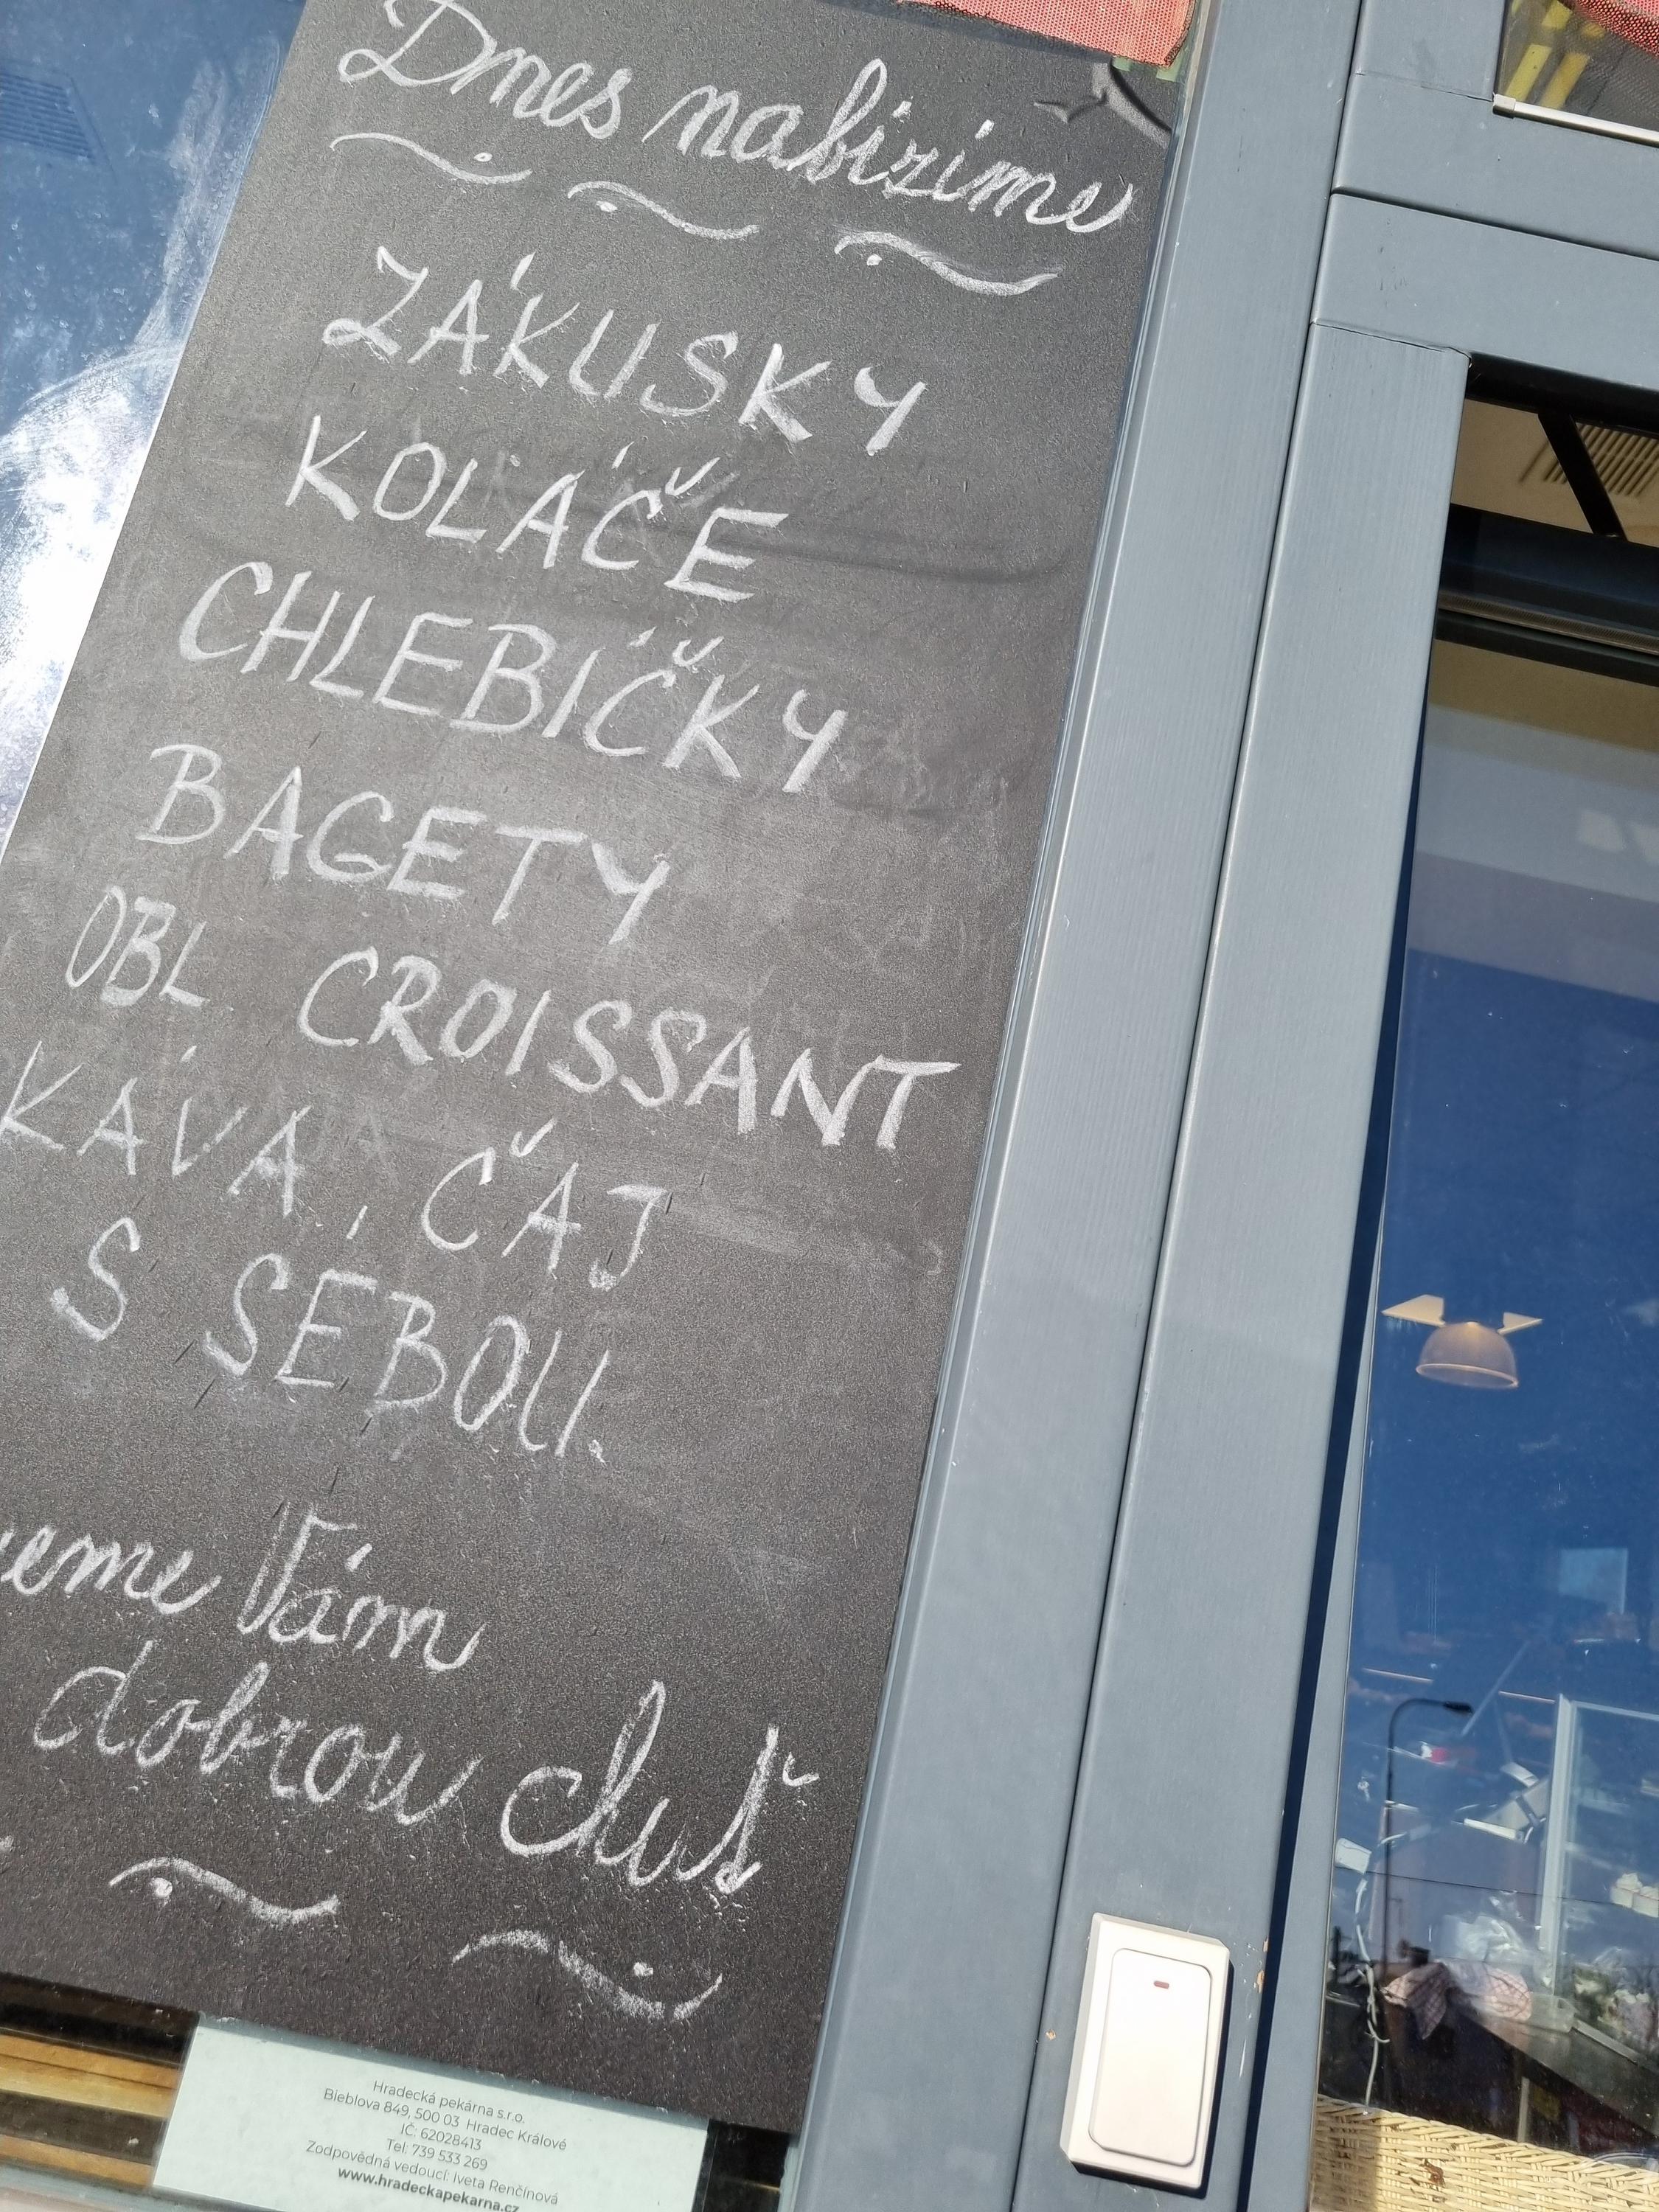 Dnes nabízíme
ZÁKUSKY
KOLÁČE
CHLEBÍČKY
BAGETY
OBL. CROISSANT
KÁVA, ČAJ
S SEBOU.
Vám
dobrou chuť
Hradecká pekárna s.r.o.
Bieblova 849, 500 03 Hradec Králové
IČ: 62028413
Tel: 739 533 269
Zodpovědná vedoucí: Iveta Renčínová
www.hradeckapekarna.cz